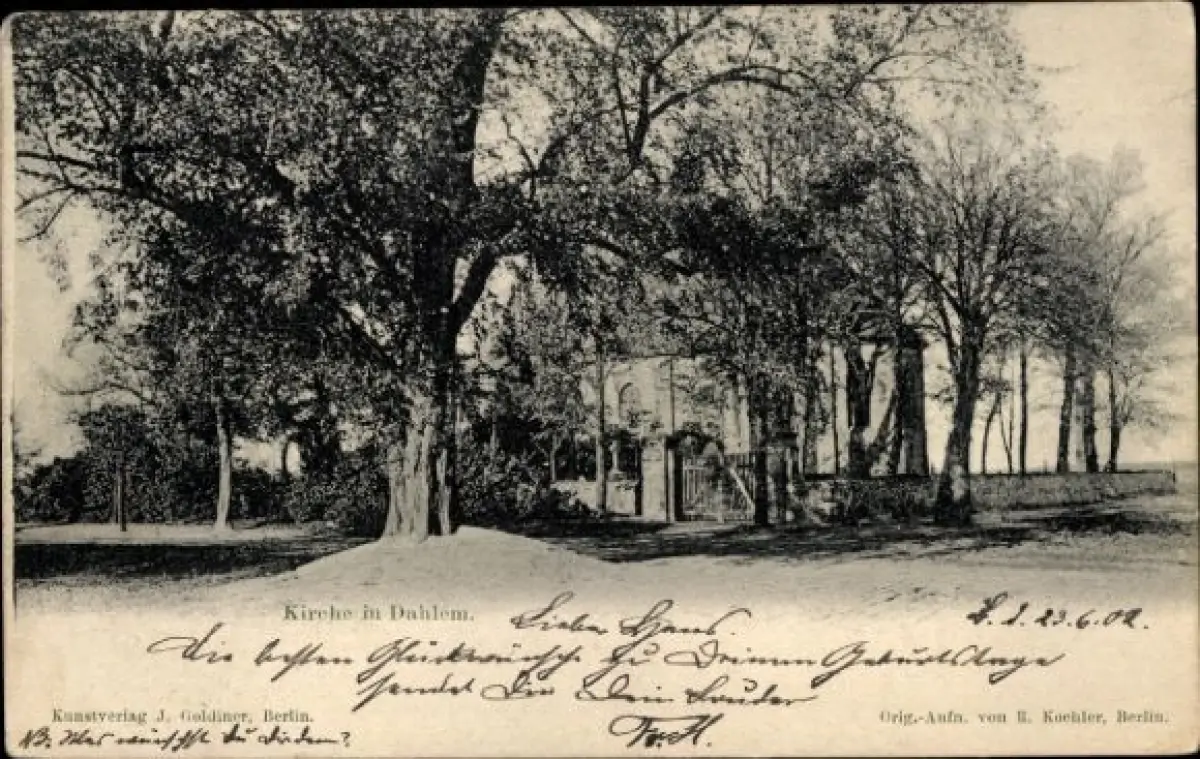 Kirche in Dahlem.
Lieber Hans.
B. d. 23.6.02.
Die besten Glückwünsche zu Deinem Geburtstage
sendet Dir Dein Bruder
Kunstverlag J. Goldiner, Berlin.
Orig.-Aufn. von R. Koehler, Berlin.
NB. Was wünschst Du Dir denn?